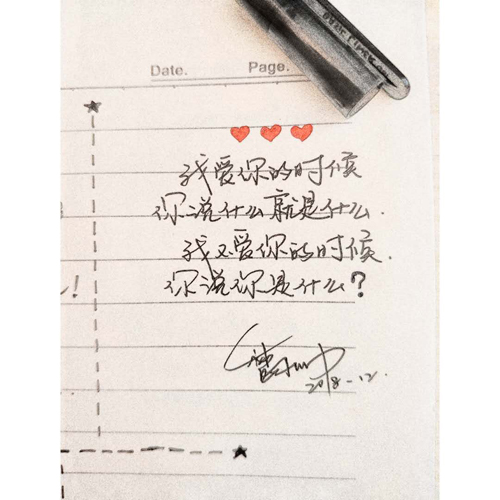 Date. Page.
我爱你的时候
你说什么就是什么.
我不爱你的时候.
你说你是什么?
!
2018-12.